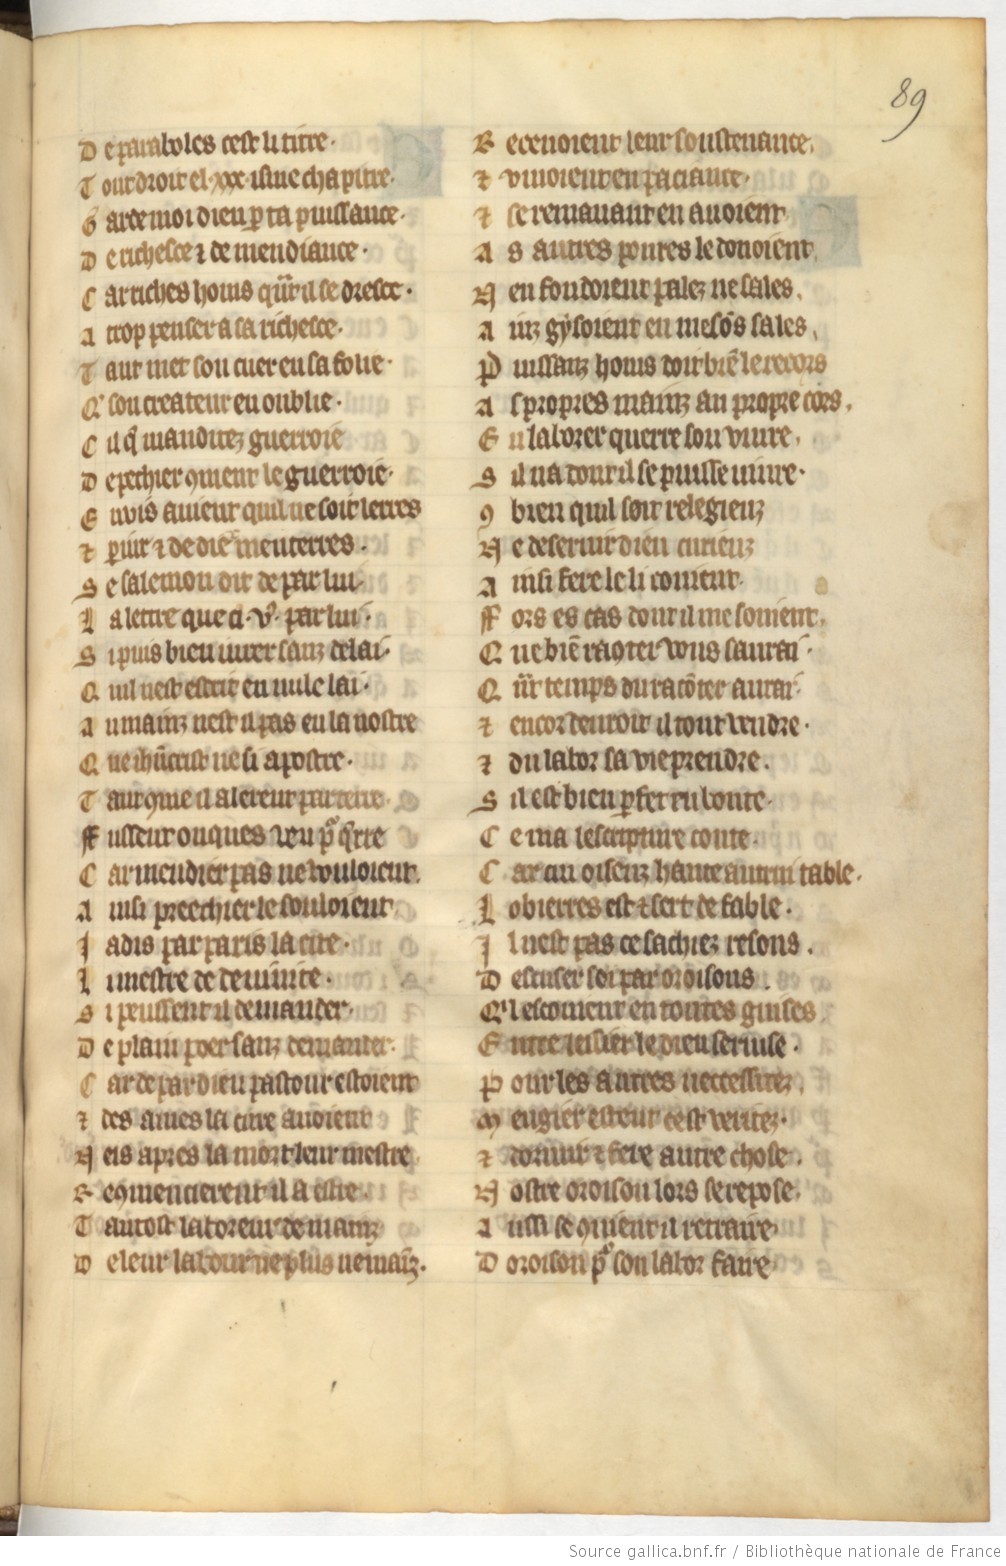 89
D e paraboles cest li titre.
T out droit el .xxx. isme chapitre.
G arde moi dieu p ta puissance.
D e richesce ⁊ de mendiance.
C ar riches homs qu͏̃t il se dresce.
A trop penser a sa richesce.
T ant met son cuer en sa folie.
Q' son createur en oublie.
C il q̃ mandicitez guerroie
D e pechier ꝯment le guerroie.
E nvis avient quil ne soit lerres
⁊ piur ⁊ de dieu menterres.
S e salemon dit de par lui
L a lettre que ci. vo9. par lui.
S i puis bien iurer sanz delai.
Q uil nest escrit en nule lai.
A u mainz nest il pas en la nostre
Q ue ihũcrist ne si apostre.
T ant ꝯme il alerent par terre
ff ussent onques veu pᵒ q̃rre
C ar mendier pas ne vouloient.
A insi preechier le souloient
J adis par paris la cite.
L i mestre de devinite.
S i peussent il demander.
D e plain poer sanz demander.
C ar de par dieu pastour estoient
⁊ des ames la cure avoient
M eis apres la mort leur mestre.
R eꝯmencierent il a estre.
T antost laboreur de mainz
D e leur labour ne plus ne mainz.
R ecevoient leur soustenance.
⁊ vivoient en paciance.
⁊ se remanant en avoient
A s autres poures le donoient
N en fondoient palez ne sales.
A inz gysoient en mesõs sales.
P uissanz homs doit biẽ le recors
A s propres mainz au propre cors.
E n laborer querre son vivre.
S il na dont il se puisse vivre.
ꝯ bien quil soit religieuz
N e de servir dieu curieuz
A insi fere le li convient
ff ors es cas dont il me sovient.
Q ue biẽ raꝯter vous saurai.
Q u͏̃t temps du racõter aurai.
⁊ encor devroit il tout vendre.
⁊ du labor sa vie prendre.
S il est bien p fet en bonte.
C e ma lescripture conte.
C ar qui oiseuz hante autrui table.
L obierres est ⁊ sert de fable.
J l nest pas ce sachiez resons.
D escuser soi par oroisons.
Q'l escovient en toutes guises
E ntrelessier le dieu servise.
P our les autres neccessitez.
M engier esteut cest veritez.
⁊ dormir ⁊ fere autre chose.
N ostre oroison lors se repose.
A ussi se ꝯvient il retraire
D oroison pᵒ son labor faire
Source gallica.bnf.fr / Bibliothèque nationale de France